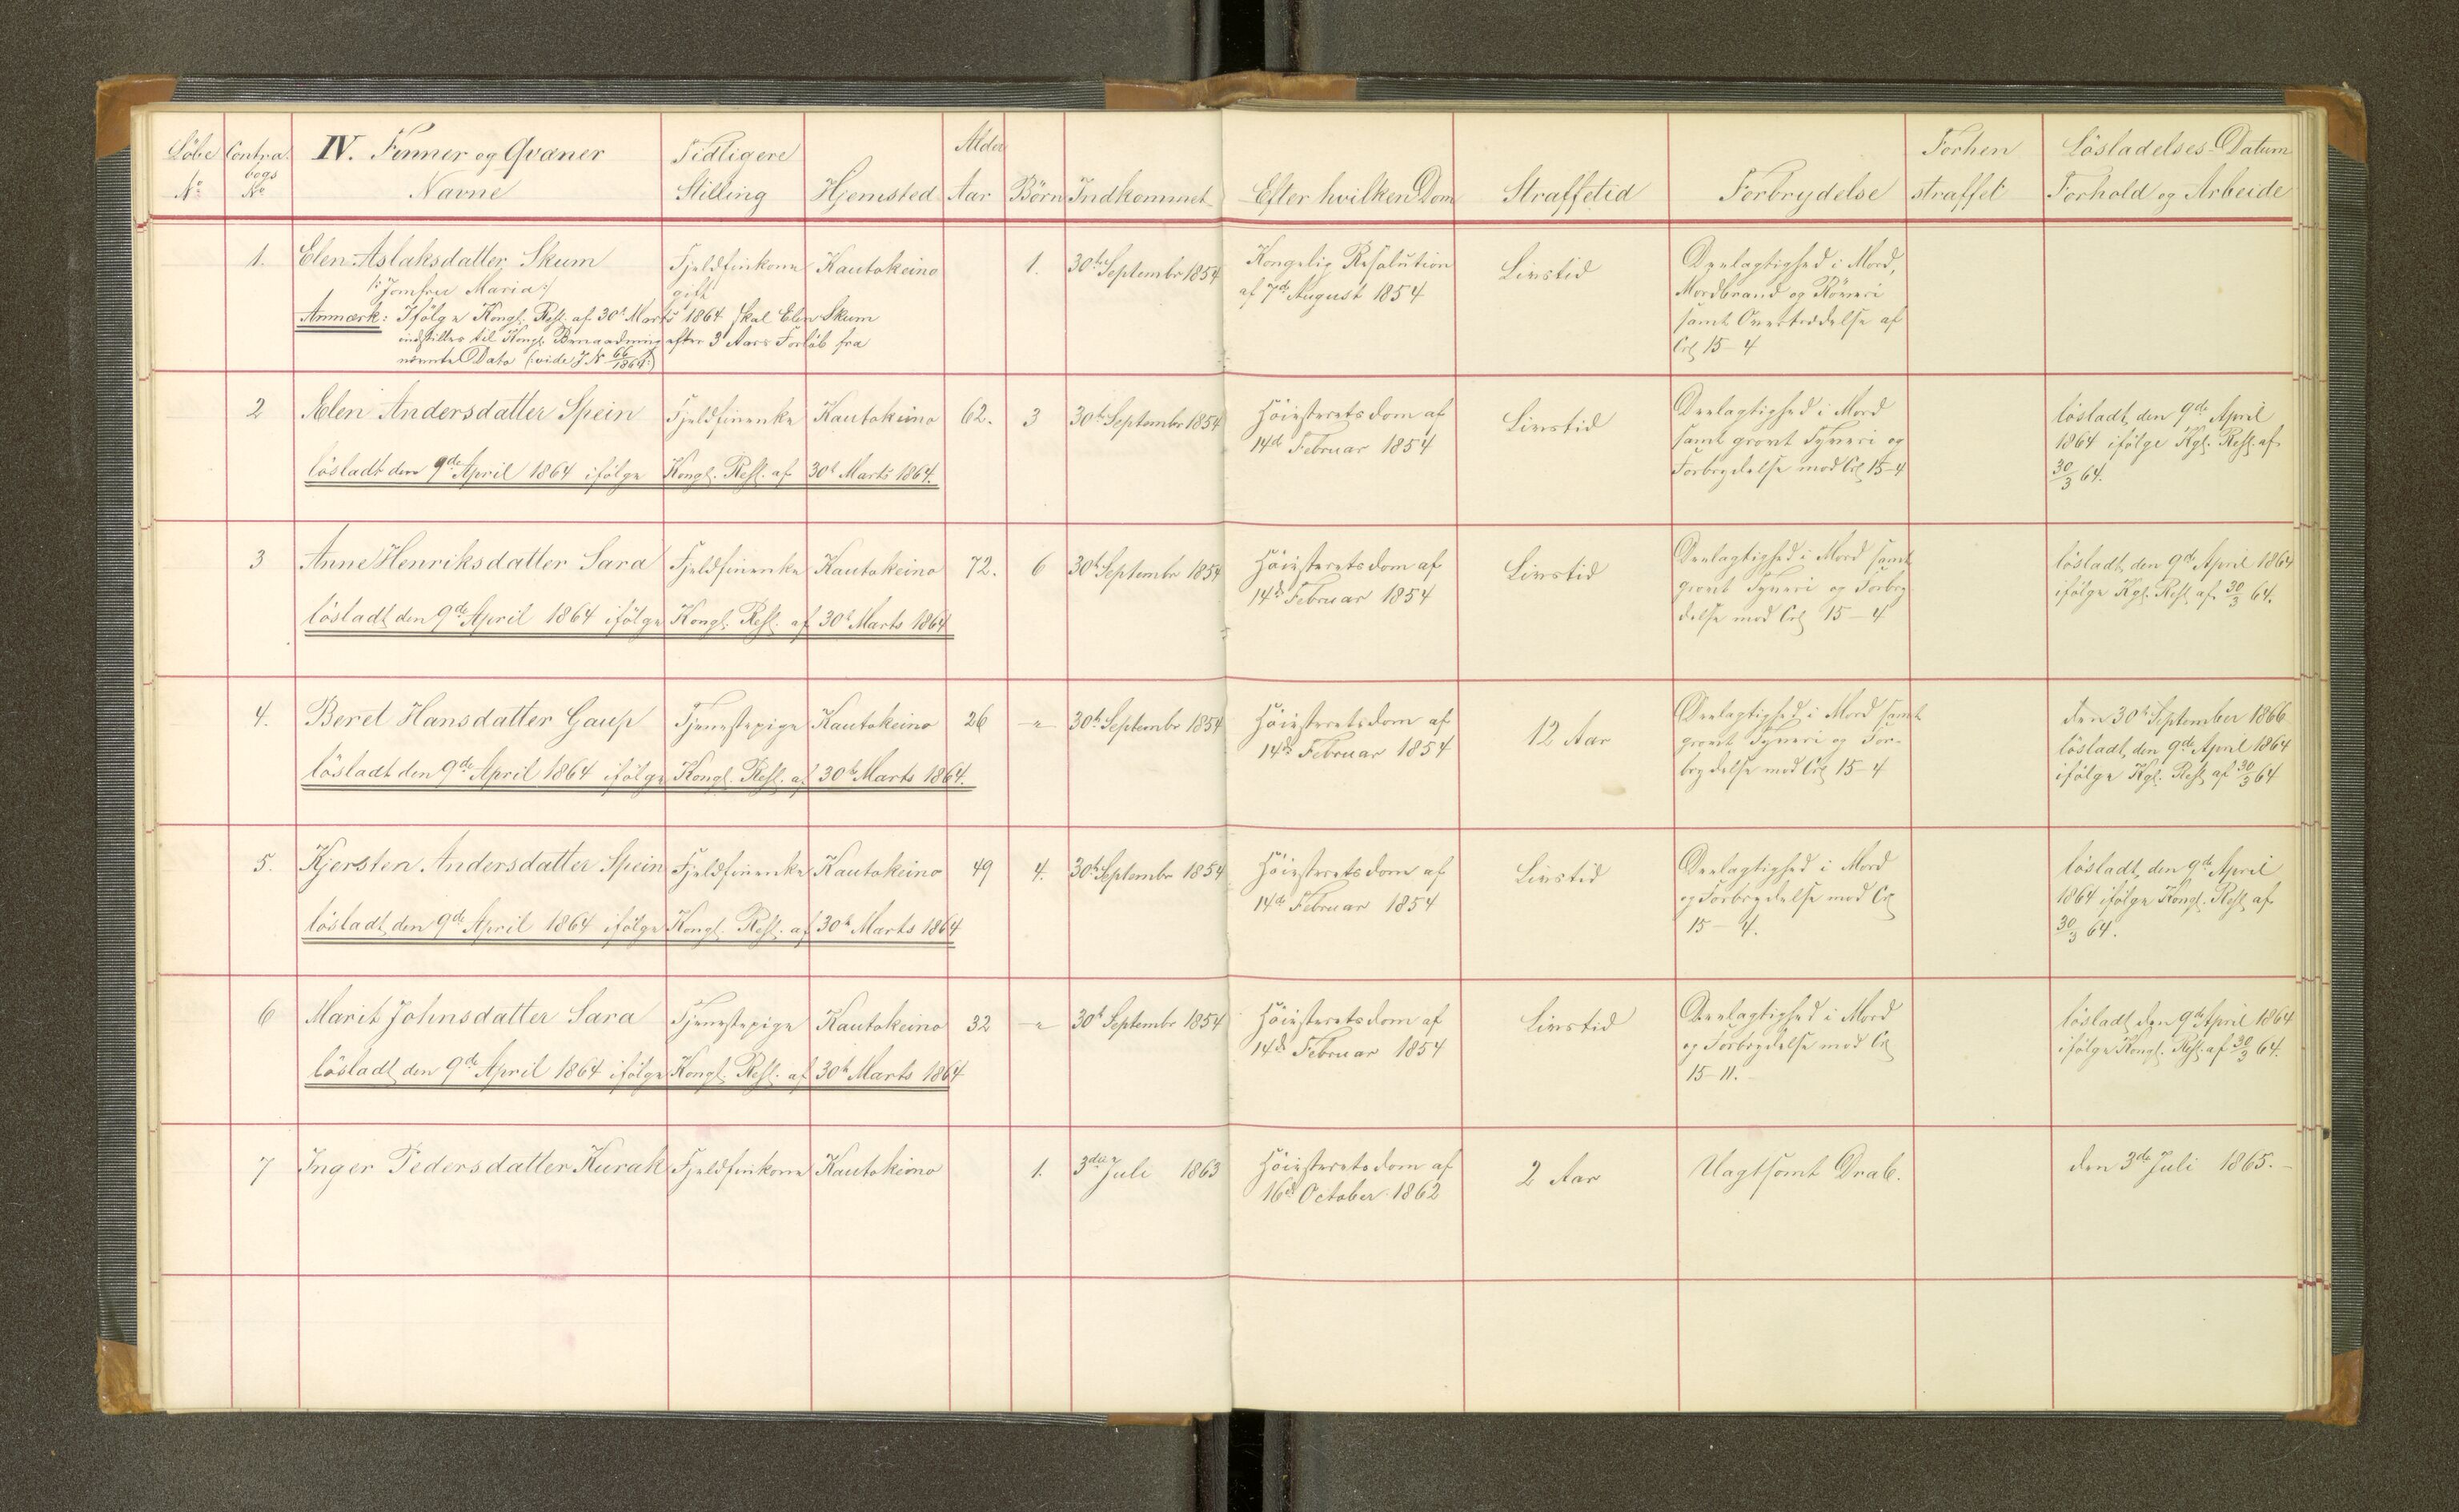 Löbe Contra. IV. Finner og Qvæner Tidligere Alder Forhen Lösladelses-Datum
No bogs No Navne Stilling Hjemsted Aar Börn Indkommet Efter hvilken Dom Straffetid Forbrydelse straffet Forhold og Arbeide
1. Elen Aslaksdatter Skum Fjeldfinkone Kautokeino 1. 30te Septembr 1854 Kongelig Resolution Livstid Deelagtighed i Mord,
/: Jomfru Maria :/ gift af 7de August 1854 Mordbrand og Röveri
Anmærk: Ifölge Kongl. Resl. af 30t Marts 1864 skal Elen Skum samt Overtrædelse af
indstilles til Kongl. Benaadning efter 3 Aars Forlöb fra Crl 15-4
nævnte Dato (: vide J. N. 66/1864 :)
2 Elen Andersdatter Spein Fjeldfinenke Kautokeino 62. 3 30te Septembr 1854 Höiesteretsdom af Livstid Deelagtighed i Mord lösladt den 9de April
14d Februar 1854 samt grovt Tyveri og 1864 ifölge Kgl. Resl. af
lösladt den 9de April 1864 ifölge Kongl. Resl. af 30t Marts 1864. Forbrydelse mod Crl 15-4 30/3 64.
3 Anne Henriksdatter Sara Fjeldfinenke Kautokeino 72. 6 30te Septembr 1854 Höiesteretsdom af Livstid Deelagtighed i Mord samt lösladt den 9de April 1864
14de Februar 1854 grovt Tyveri og Forbry ifölge Kgl. Resl. af 30/3 64.
lösladt den 9de April 1864 ifölge Kongl. Resl. af 30t Marts 1864 delse mod Crl 15-4
4. Beret Hansdatter Gaup Tjenestepige Kautokeino 26 -"- 30te Septembr 1854 Höiesteretsdom af 12 Aar Deelagtighed i Mord samt den 30te September 1866
14de Februar 1854 grovt Tyveri og For- lösladt, den 9de April 1864
lösladt den 9de April 1864 ifölge Kongl. Resl. af 30te Marts 1864. brydelse mod Crl 15-4 ifölge Kgl. Resl. af 30/3 64
5. Kjersten Andersdatter Spein Fjeldfinenke Kautokeino 49 4. 30te Septembr 1854 Höiesteretsdom af Livstid Deelagtighed i Mord lösladt, den 9de April
14de Februar 1854 og Forbrydelse mod Crl 1864 ifölge Kongl. Resl. af
lösladt, den 9de April 1864 ifölge Kongl. Resl. af 30te Marts 1864 15-4. 30/3 64.
6 Marit Johnsdatter Sara Tjenestepige Kautokeino 32 -"- 30t Septembr 1854 Höiesteretsdom af Livstid Deelagtighed i Mord lösladt, den 9de April 1864
14de Februar 1854 og Forbrydelse mod Crl ifölge Kongl. Resl. af 30/3 64.
lösladt, den 9de April 1864 ifölge Kongl. Resl. af 30te Marts 1864 15-11.-
7 Inger Pedersdatter Kurak Fjeldfinkone Kautokeino 1. 3die Juli 1863 Höiesteretsdom af 2 Aar Uagtsomt Drab. den 3de Juli 1865.-
16d October 1862